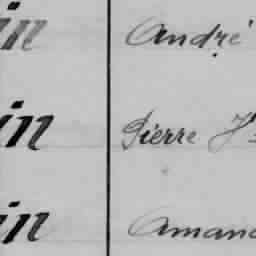 in André
in Pierre J
in Aman